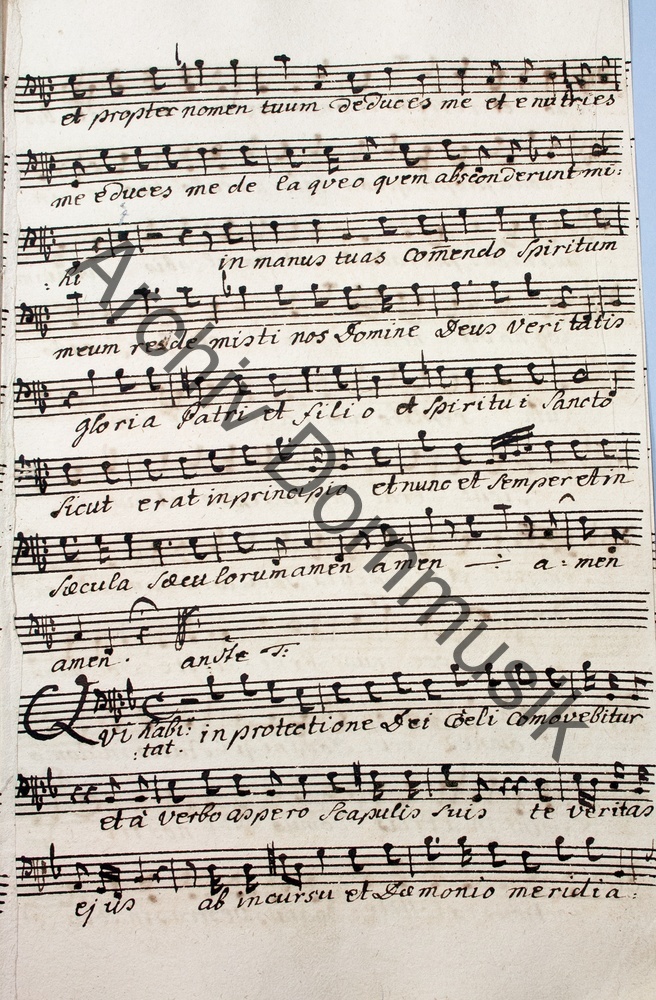 et propter nomen tuum deduces me et enutries
me educes me de laqueo quem absconderunt mi:
:hi in manus tuas com̄endo spiritum
meum redemisti nos Domine Deus veritatis
gloria Patri et filio et spiritui Sancto
Sicut erat in principio et nunc et semper et in
sæcula sæculorum amen amen —:— a:men
amen.
Qui habi: in protectione Dei Cœli Comovebitur
:tat.
et à verbo aspero Scapulis suis te veritas
ejus ab incursu et Dæmonio meridia:
Archiv Dommusik